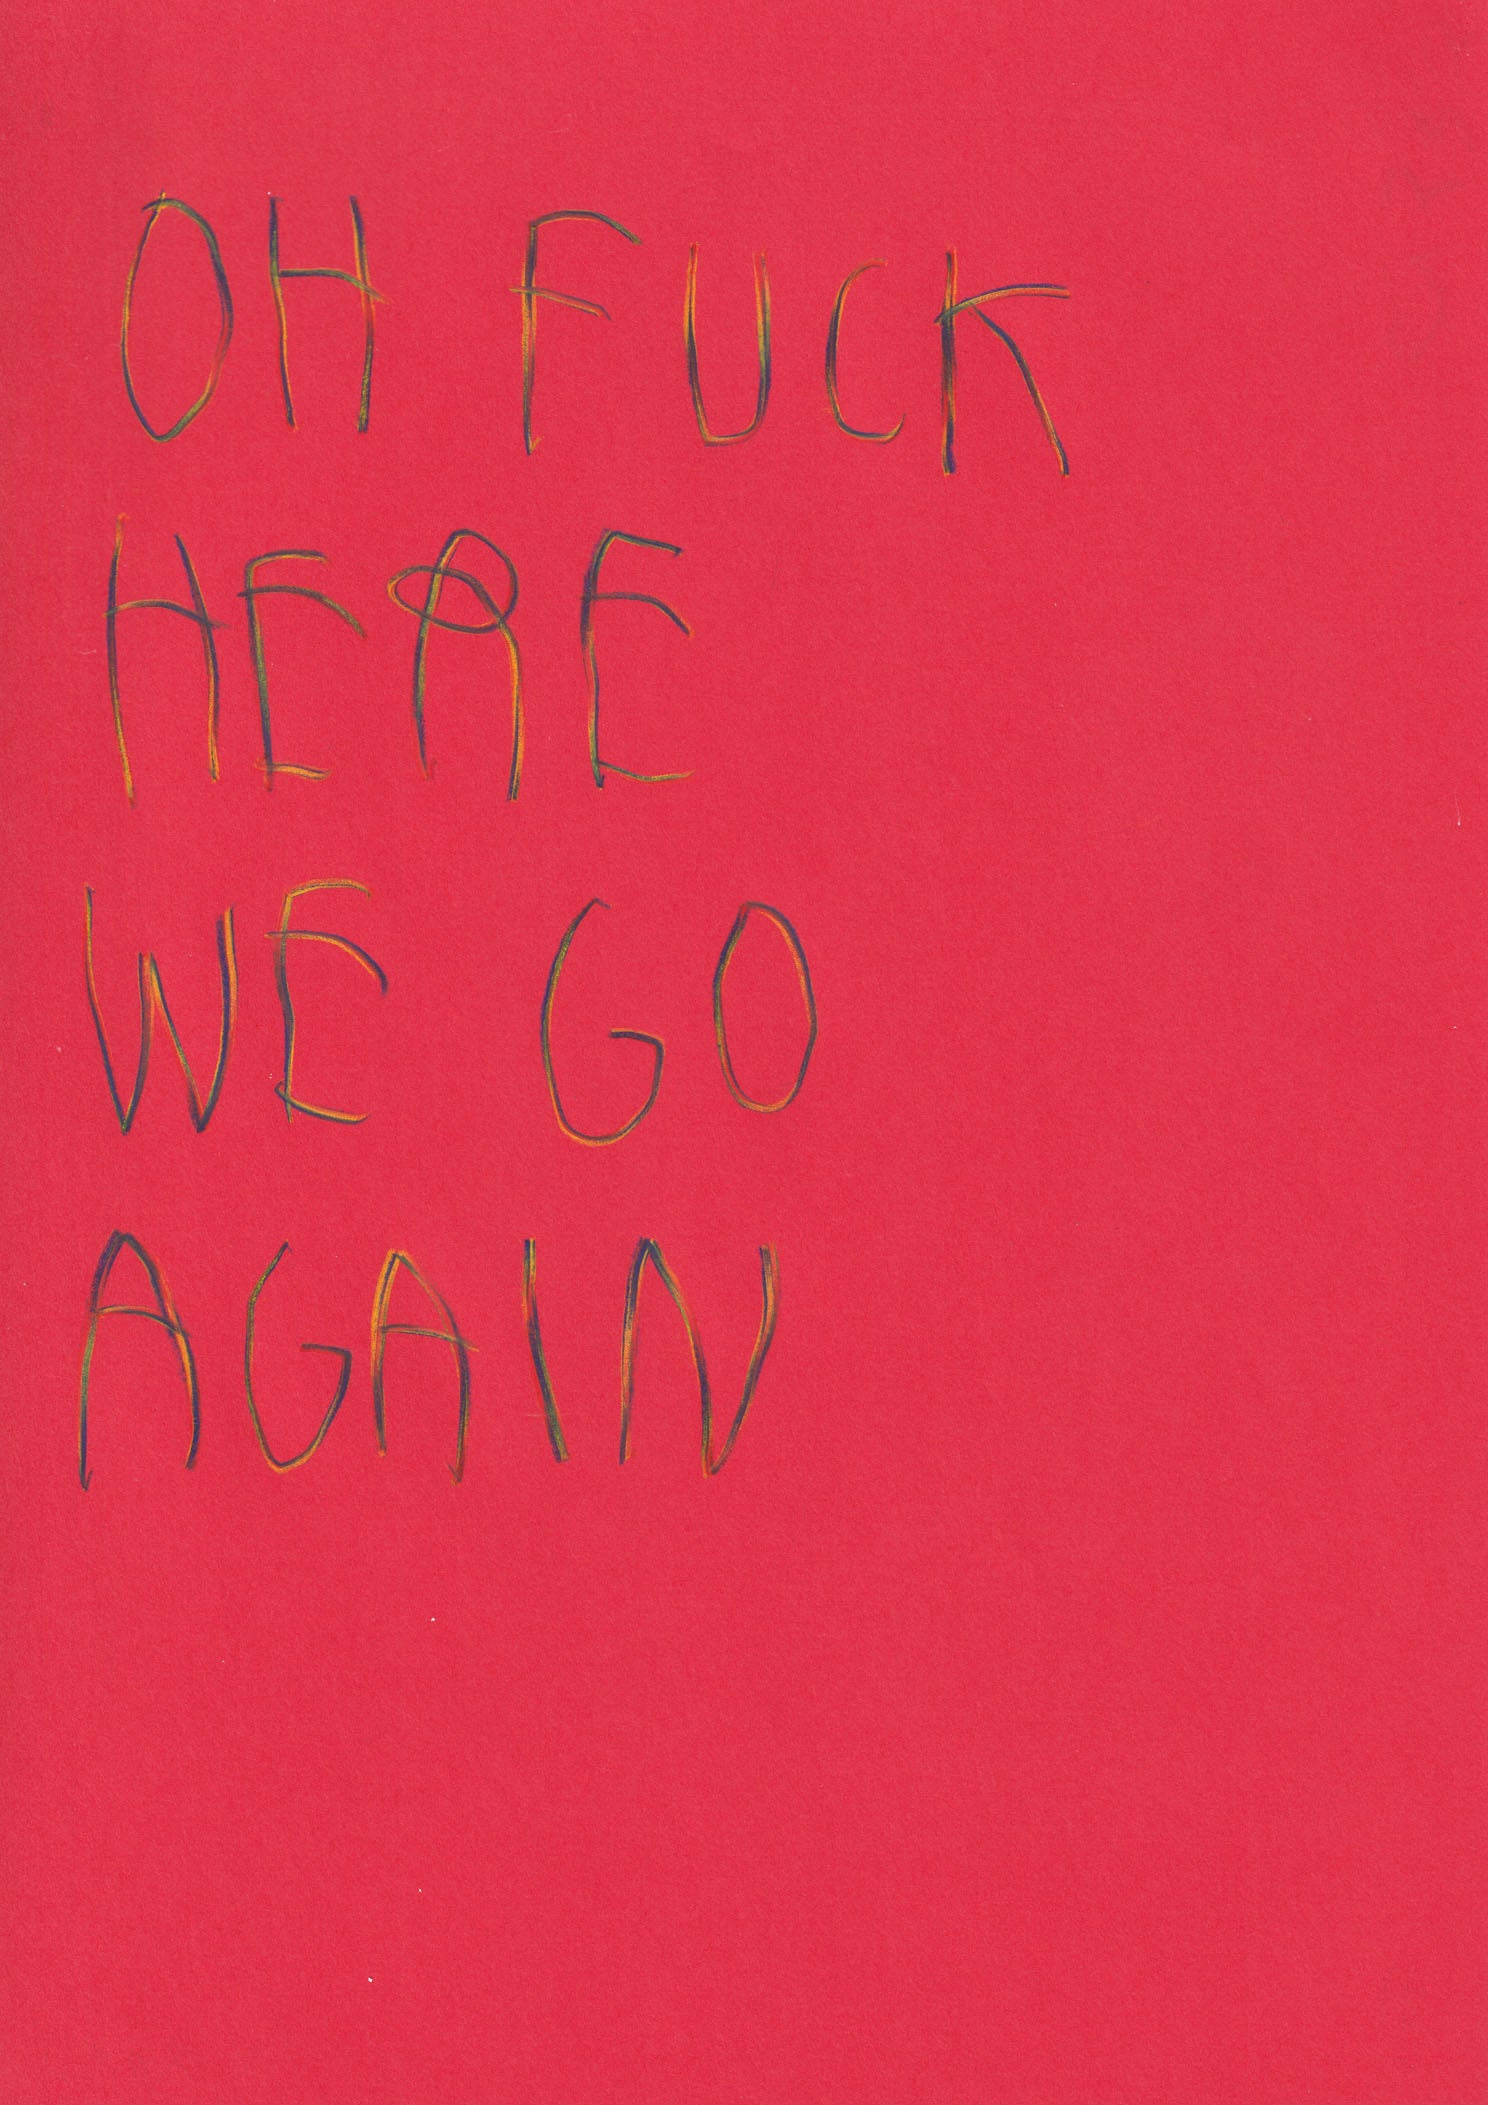 OH FUCK
HERE
WE GO
AGAIN